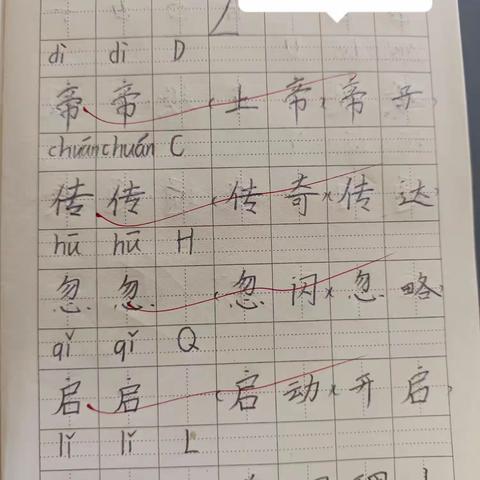 dì dì D
帝 帝 (上帝)(帝号)
chuán chuán C
传 传 (传奇)(传达)
hū hū H
忽 忽 (忽闪)(忽略)
qǐ qǐ Q
启 启 (启动)(开启)
lǐ lǐ L